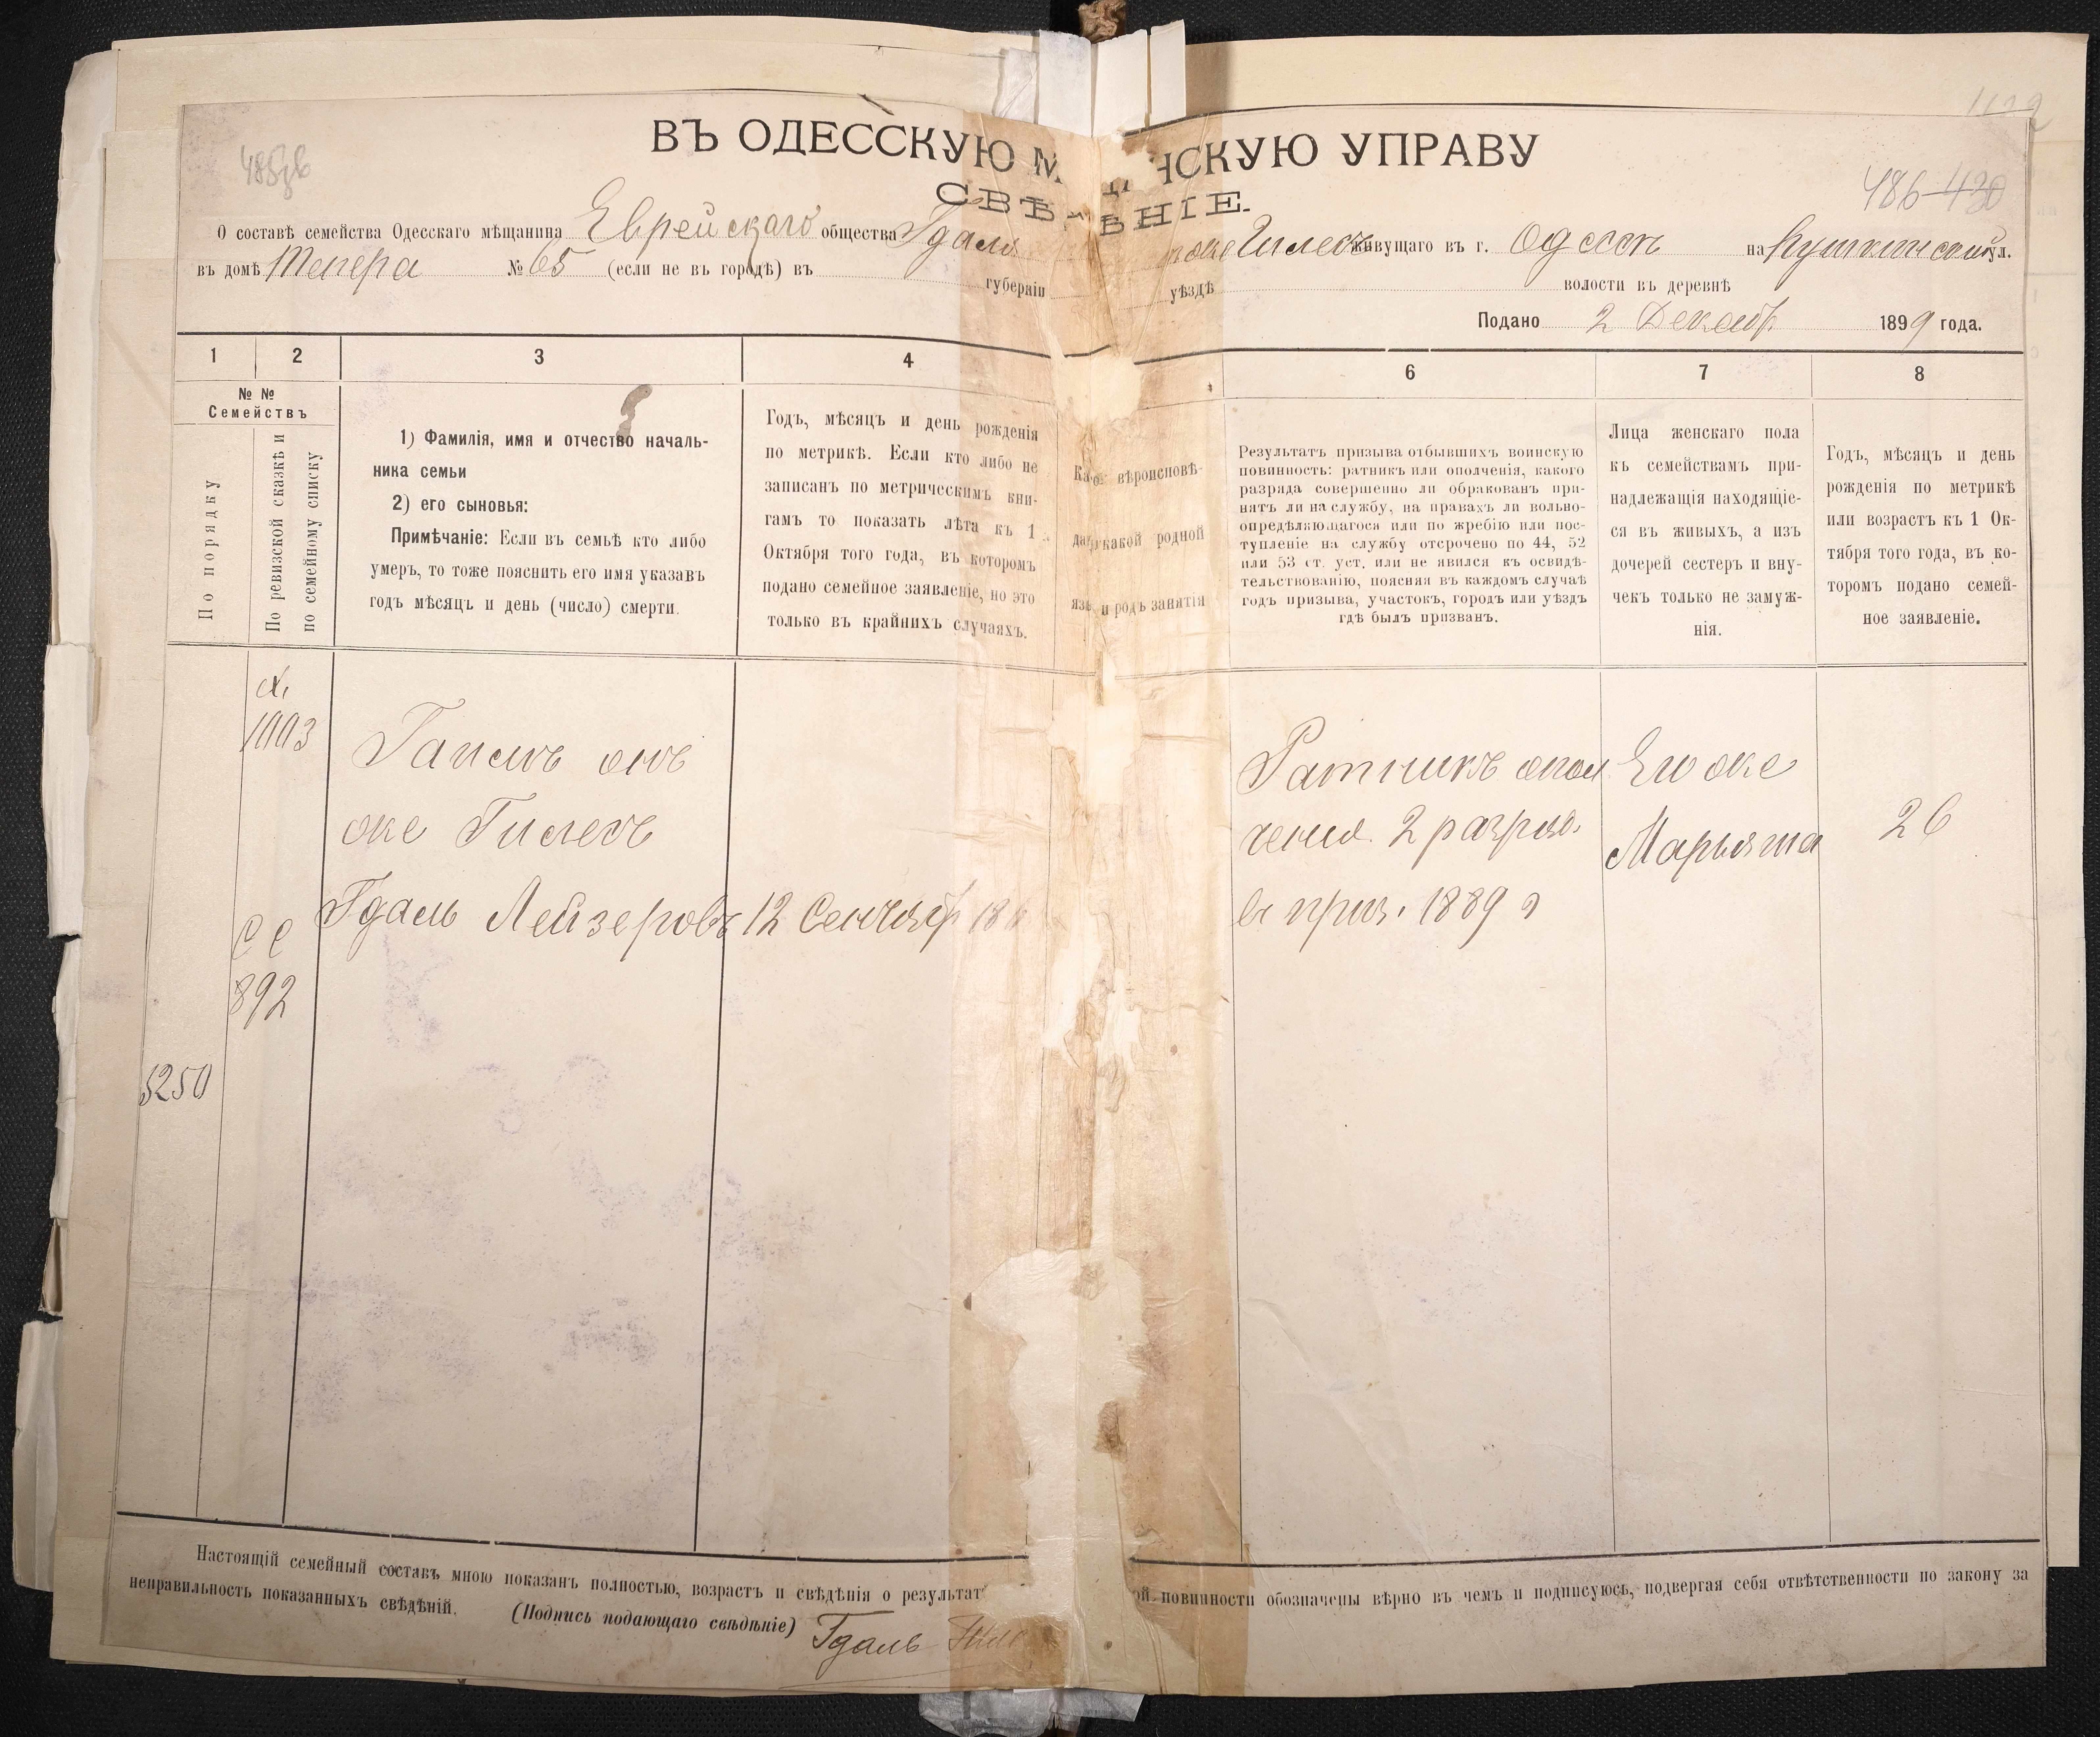 ВЪ ОДЕССКУЮ М НСКУЮ УПРАВУ
СВѢ ѢНІЕ.
486-430
О составѣ семейства Одесскаго мѣщанина Еврейскаго общества Гдаль же Гилесъ живущаго въ г. Одессѣ на Пушкинской ул.
въ домѣ Тепера № 65 (если не въ городѣ) въ губерніи уѣздѣ волости въ деревнѣ
Подано 2 Декабр. 1899 года.
1 2 3 4 6 7 8
№ №
Семействъ
По порядку
По ревизской сказкѣ и
по семейному списку
1) Фамилія, имя и отчество началь-
ника семьи
2) его сыновья:
Примѣчаніе: Если въ семьѣ кто либо
умеръ, то тоже пояснить его имя указавъ
годъ мѣсяцъ и день (число) смерти.
Годъ, мѣсяцъ и день рожденія
по метрикѣ. Если кто либо не
записанъ по метрическимъ кни-
гамъ то показать лѣта къ 1
Октября того года, въ которомъ
подано семейное заявленіе, но это
только въ крайнихъ случаяхъ.
вѣроисповѣ-
какой родной
и родъ занятія
Результатъ призыва отбывшихъ воинскую
повинность: ратникъ или ополченія, какого
разряда совершенно ли обракованъ при-
нятъ ли на службу, на правахъ ли вольно-
опредѣляющагося или по жребію или пос-
тупленіе на службу отсрочено по 44, 52
или 53 ст. уст. или не явился къ освидѣ-
тельствованію, поясняя въ каждомъ случаѣ
годъ призыва, участокъ, городъ или уѣздъ
гдѣ былъ призванъ.
Лица женскаго пола
къ семействамъ при-
надлежащія находящіе-
ся въ живыхъ, а изъ
дочерей сестеръ и вну-
чекъ только не замуж-
нія.
Годъ, мѣсяцъ и день
рожденія по метрикѣ
или возрастъ къ 1 Ок-
тября того года, въ ко-
торомъ подано семей-
ное заявленіе.
1003
Гапелъ онъ
же Гилесъ
Гдаль Лейзеровъ
12 Сентябр 18
Ратникъ опол
ченія 2 разряд.
въ приз. 1889 г
Его же
Марьяма
26
892
5250
Настоящій семейный составъ мною показанъ полностью, возрастъ и свѣдѣнія о результат ой повинности обозначены вѣрно въ чемъ и подписуюсь, подвергая себя отвѣтственности по закону за
неправильность показанныхъ свѣдѣній. (Подпись подающаго свѣдѣніе) Гдаль